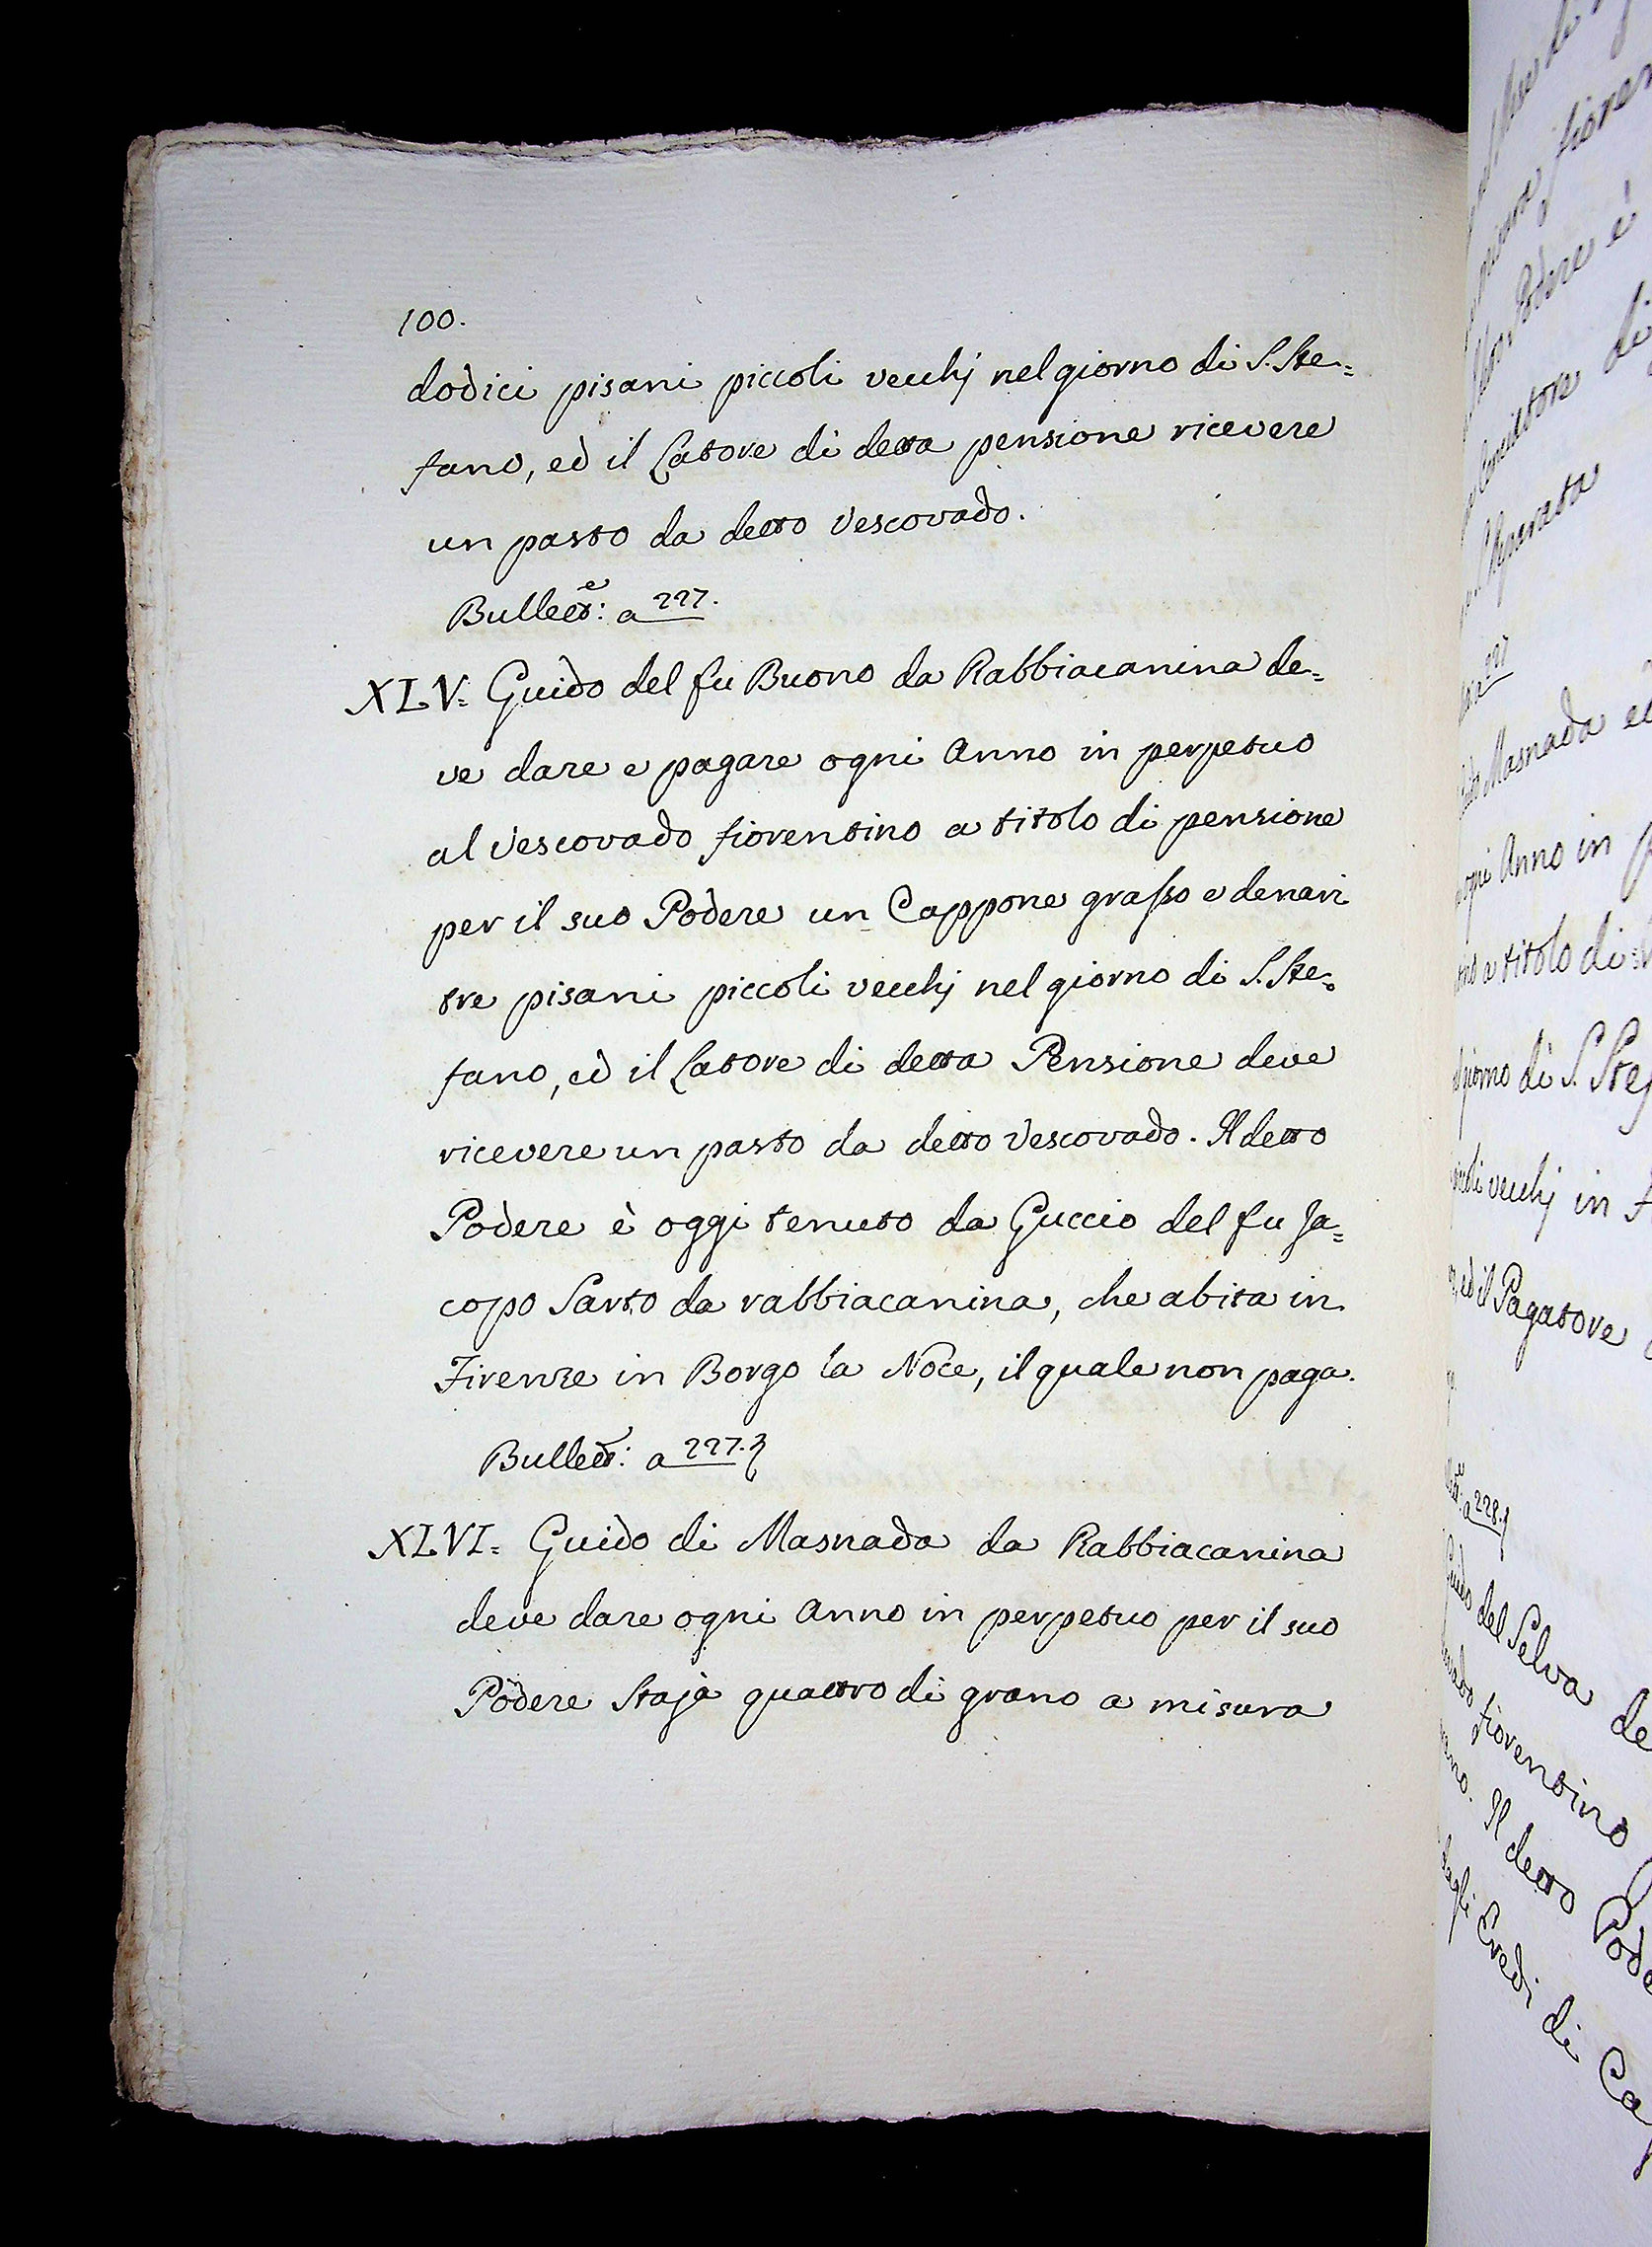 100.
dodici pisani piccoli vecchj nel giorno di S. Ste=
fano, ed il Latore di detta pensione ricevere
un pasto da detto Vescovado.
Bullett:e a 227.
XLV= Guido del fu Buono da Rabbiacanina de=
ve dare e pagare ogni Anno in perpetuo
al Vescovado fiorentino a titolo di pensione
per il suo Podere un Cappone grasso e denari
tre pisani piccoli vecchj nel giorno di S. Ste=
fano, ed il Latore di detta Pensione deve
ricevere un pasto da detto Vescovado. Il detto
Podere è oggi tenuto da Guccio del fu Ja=
copo Sarto da rabbiacanina, che abita in
Firenze in Borgo la Noce, il quale non paga.
Bullett: a 227.
XLVI= Guido di Masnada da Rabbiacanina
deve dare ogni Anno in perpetuo per il suo
Podere Staja quattro di grano a misura
Podere è
di
227
Masnada
Anno in
a titolo di
giorno di S. Stef
vecchj in
ed il Pagatore
a 228.
Guido del Selva de
fiorentino
Il detto Pode
Eredi di Ca